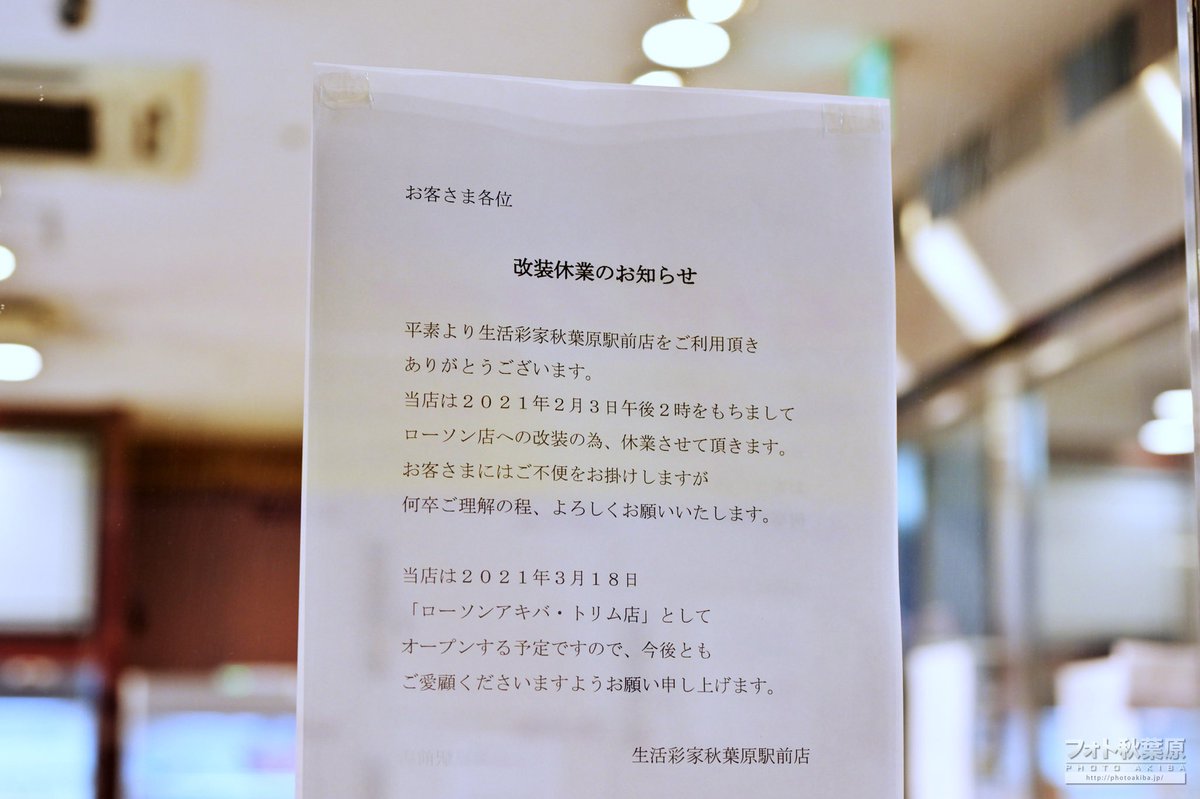 お客さま各位
改装休業のお知らせ
平素より生活彩家秋葉原駅前店をご利用頂き
ありがとうございます。
当店は２０２１年２月３日午後２時をもちまして
ローソン店への改装の為、休業させて頂きます。
お客さまにはご不便をお掛けしますが
何卒ご理解の程、よろしくお願いいたします。
当店は２０２１年３月１８日
「ローソンアキバ・トリム店」として
オープンする予定ですので、今後とも
ご愛顧くださいますようお願い申し上げます。
生活彩家秋葉原駅前店
フォト秋葉原
PHOTO AKIBA
http://photoakiba.jp/